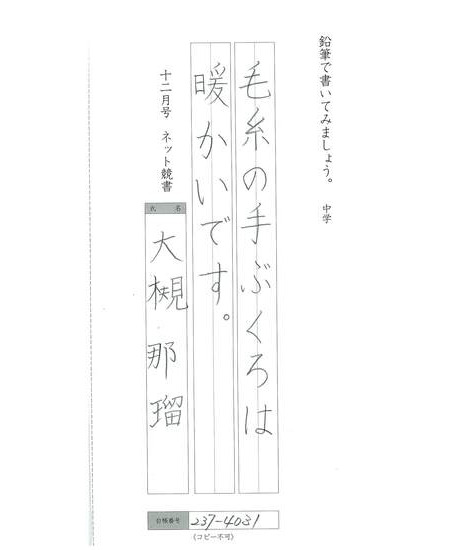 鉛筆で書いてみましょう。 中学
毛糸の手ぶくろは
暖かいです。
十二月号 ネット競書
氏 名
大槻 那瑠
台帳番号 237-4031
《コピー不可》